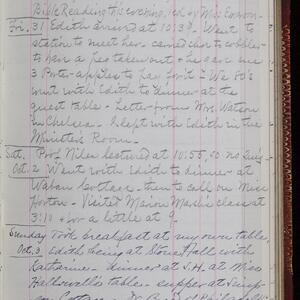 Bible Reading this evening, led by Miss
Fri. 31 Edith arrived at 10:39. Went to
station to meet her - carried chair to cobbler
to have a peg taken out & he gave me
3 Porter apples to pay for it - We 80's
went with Edith to dinner at the
guest table - Letter from Mrs. Watson
in Chelsea. I slept with Edith in the
Minister's Room.
Sat. Prof. Niles lectured at 10:55, so no
Oct. 2 Went with Edith to dinner at
Waban Cottage - then to call on Miss
Horton - Visited Marion Marsh's class at
3:10 & for a little at 9.
Sunday Took breakfast at my own table,
Oct. 3 Edith being at Stone Hall with
Katharine - dinner at S.H. at Miss
Hallowell's table - supper at Simp-
son Cottage